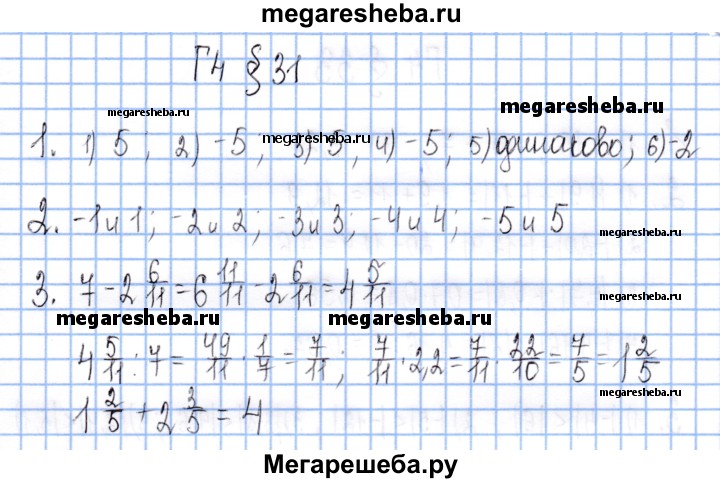 megaresheba.ru
Г4 § 31
megaresheba.ru
megaresheba.ru
1. 1) 5; 2) -5; 3) 5; 4) -5; 5) одинаково; 6) -2
megaresheba.ru
2. -1 и 1; -2 и 2; -3 и 3; -4 и 4; -5 и 5
megaresheba.ru
3. 7 - 2 6/11 = 6 11/11 - 2 6/11 = 4 5/11
megaresheba.ru
megaresheba.ru megaresheba.ru
4 5/11 : 7 = 49/11 · 1/7 = 7/11; 7/11 · 2,2 = 7/11 · 22/10 = 7/5 = 1 2/5
megaresheba.ru
1 2/5 + 2 3/5 = 4
Мегарешеба.ру